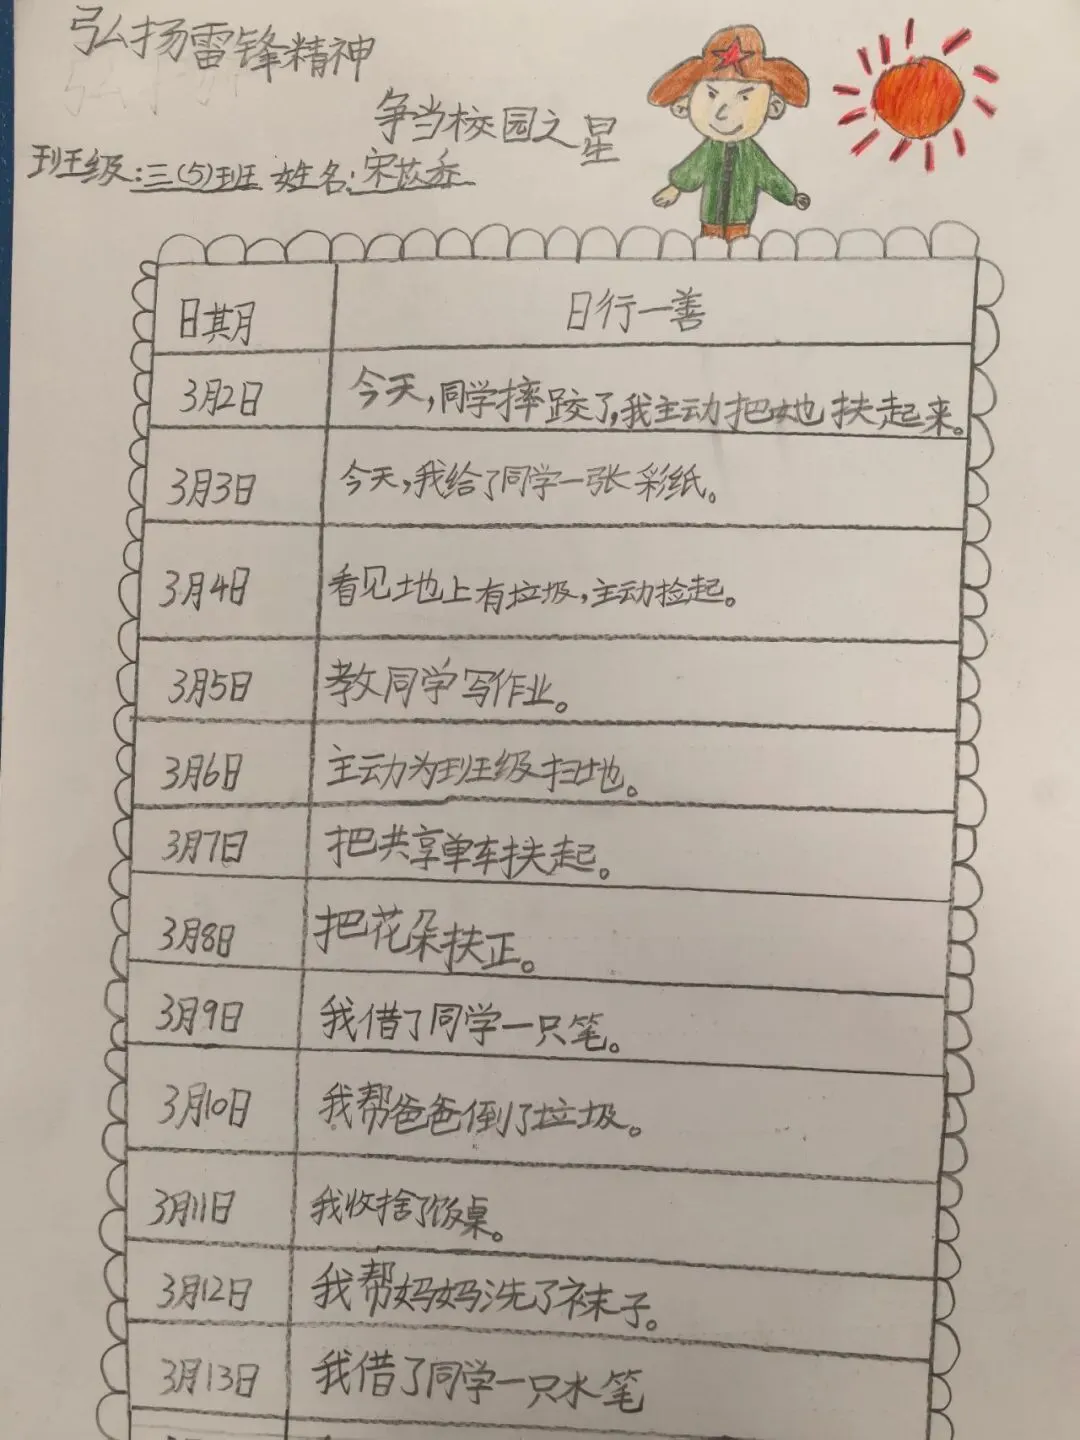 弘扬雷锋精神
争当校园之星
班级:三(5)班 姓名:宋苡乔
日期 日行一善
3月2日 今天,同学摔跤了,我主动把她扶起来。
3月3日 今天,我给了同学一张彩纸。
3月4日 看见地上有垃圾,主动捡起。
3月5日 教同学写作业。
3月6日 主动为班级扫地。
3月7日 把共享单车扶起。
3月8日 把花朵扶正。
3月9日 我借了同学一只笔。
3月10日 我帮爸爸倒了垃圾。
3月11日 我收捨了饭桌。
3月12日 我帮妈妈洗了袜子。
3月13日 我借了同学一只水笔